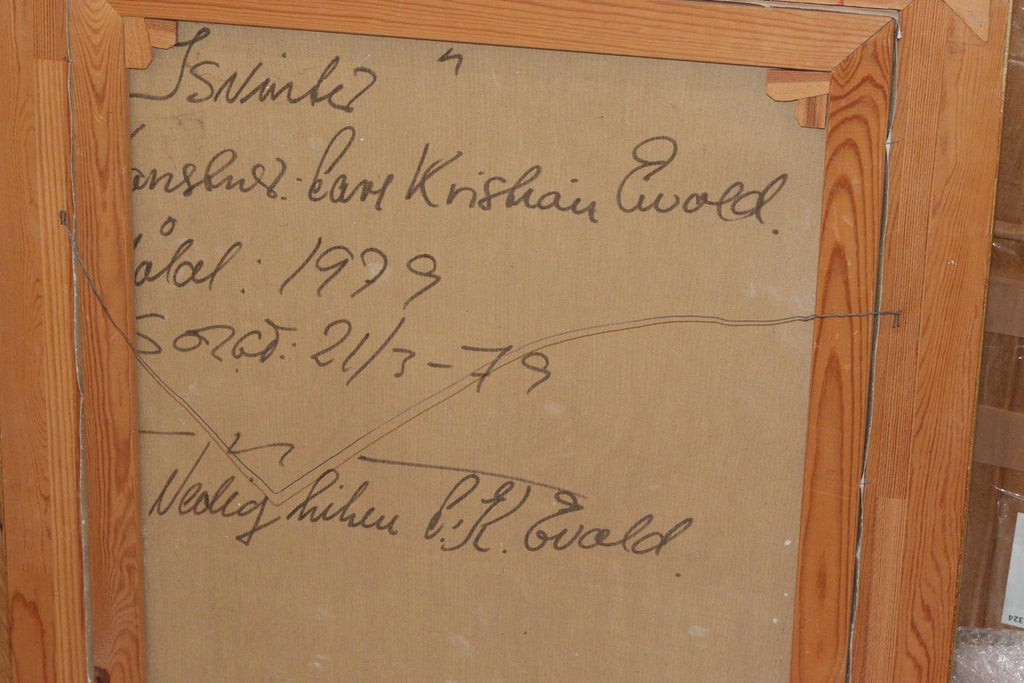 Isvinter "
anstner: Carl Kristian Ewald.
ålat: 1979
21/3-79
Venlig hilsen C.K. Ewald.
324